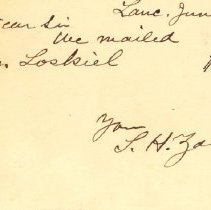 Lanc. Jun
ear Sir
We mailed
Loskiel
You
S. H. Za